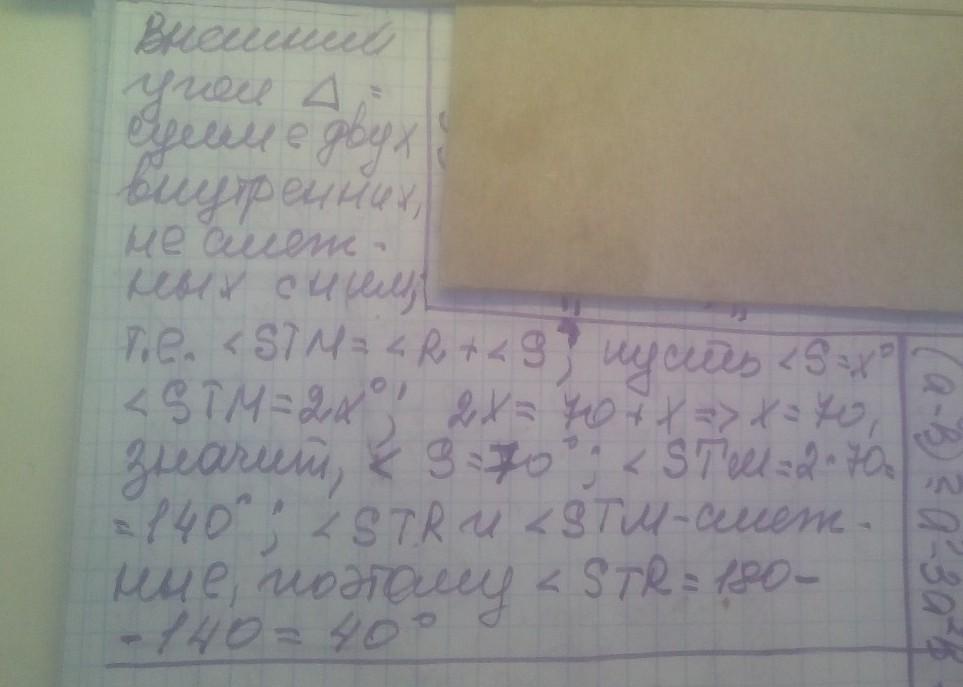 Внешний
угол △ =
сумме двух
внутренних,
не смеж-
ных с ним,
т.е. <STM = <R + <S; пусть <S=x°
<STM = 2x°; 2x = 70 + x => x = 70,
значит, < S = 70°; < STM = 2·70=
=140°; <STR и <STM-смеж-
ные, поэтому <STR = 180-
-140 = 40°
(a-в)³=a³-3a²в